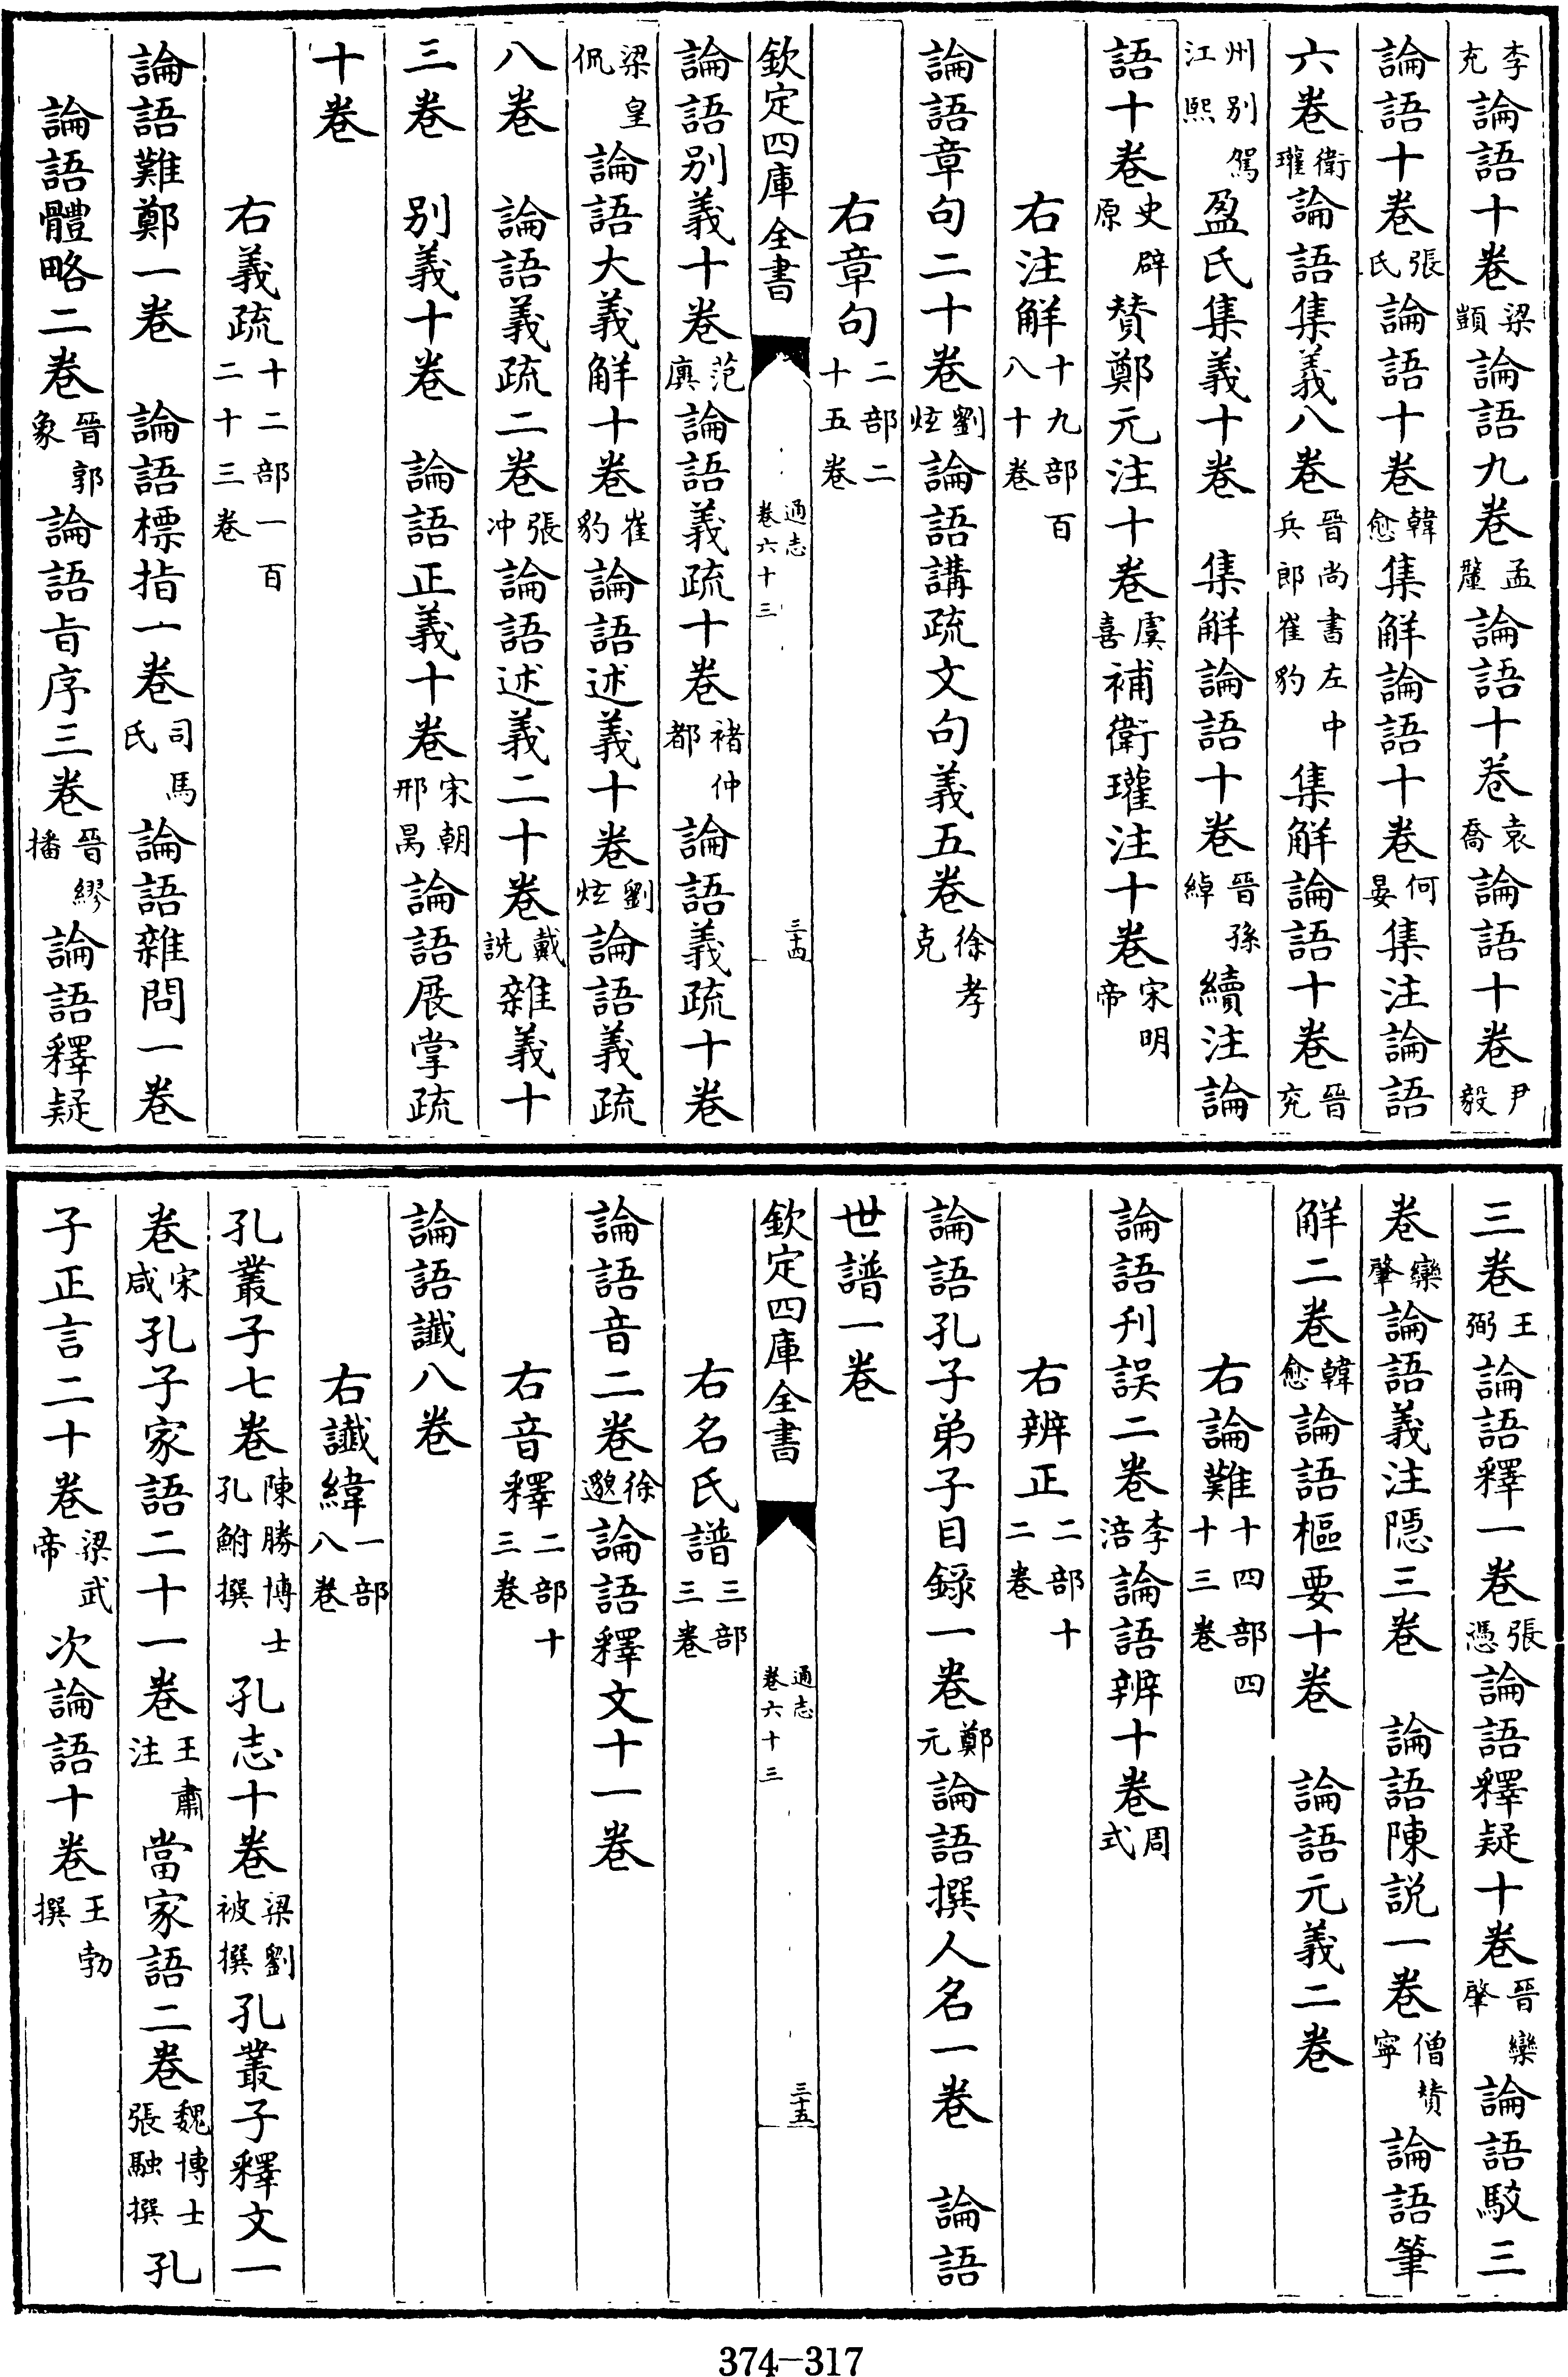 李充論語十卷梁顗論語九卷孟釐論語十卷袁喬論語十卷尹毅
論語十卷張氏論語十卷韓愈集解論語十卷何晏集注論語
六卷衛瓘論語集義八卷晉尚書左中兵郎崔豹集解論語十卷晉兖
州别駕江熙盈氏集義十卷集解論語十卷晉孫綽續注論
語十卷史辟原贊鄭元注十卷虞喜補衛瓘注十卷宋明帝
右注解十九部百八十卷
論語章句二十卷劉炫論語講疏文句義五卷徐孝克
右章句二部二十五卷
欽定四庫全書 通志卷六十三 三十四
論語别義十卷范廙論語義疏十卷褚仲都論語義疏十卷
梁皇侃論語大義解十卷崔豹論語述義十卷劉炫論語義疏
八卷論語義疏二卷張冲論語述義二十卷戴詵雜義十
三卷别義十卷論語正義十卷宋朝邢昺論語展掌疏
十卷
右義疏十二部一百二十三卷
論語難鄭一卷論語標指一卷司馬氏論語雜問一卷
論語體略二卷晉郭象論語旨序三卷晉繆播論語釋疑
三卷王弼論語釋一卷張憑論語釋疑十卷晉欒肇論語駮三
卷欒肇論語義注隱三卷論語陳説一卷僧贊寧論語筆
解二卷韓愈論語樞要十卷論語元義二卷
右論難十四部四十三卷
論語刋誤二卷李涪論語辨十卷周式
右辨正二部十二卷
論語孔子弟子目錄一卷鄭元論語撰人名一卷論語
世譜一卷
欽定四庫全書 通志卷六十三 三十五
右名氏譜三部三卷
論語音二卷徐邈論語釋文十一卷
右音釋二部十三卷
論語讖八卷
右讖緯一部八卷
孔叢子七卷陳勝博士孔鮒撰孔志十卷梁劉被撰孔叢子釋文一
卷宋咸孔子家語二十一卷王肅注當家語二卷魏博士張融撰孔
子正言二十卷梁武帝次論語十卷王勃撰
374-317